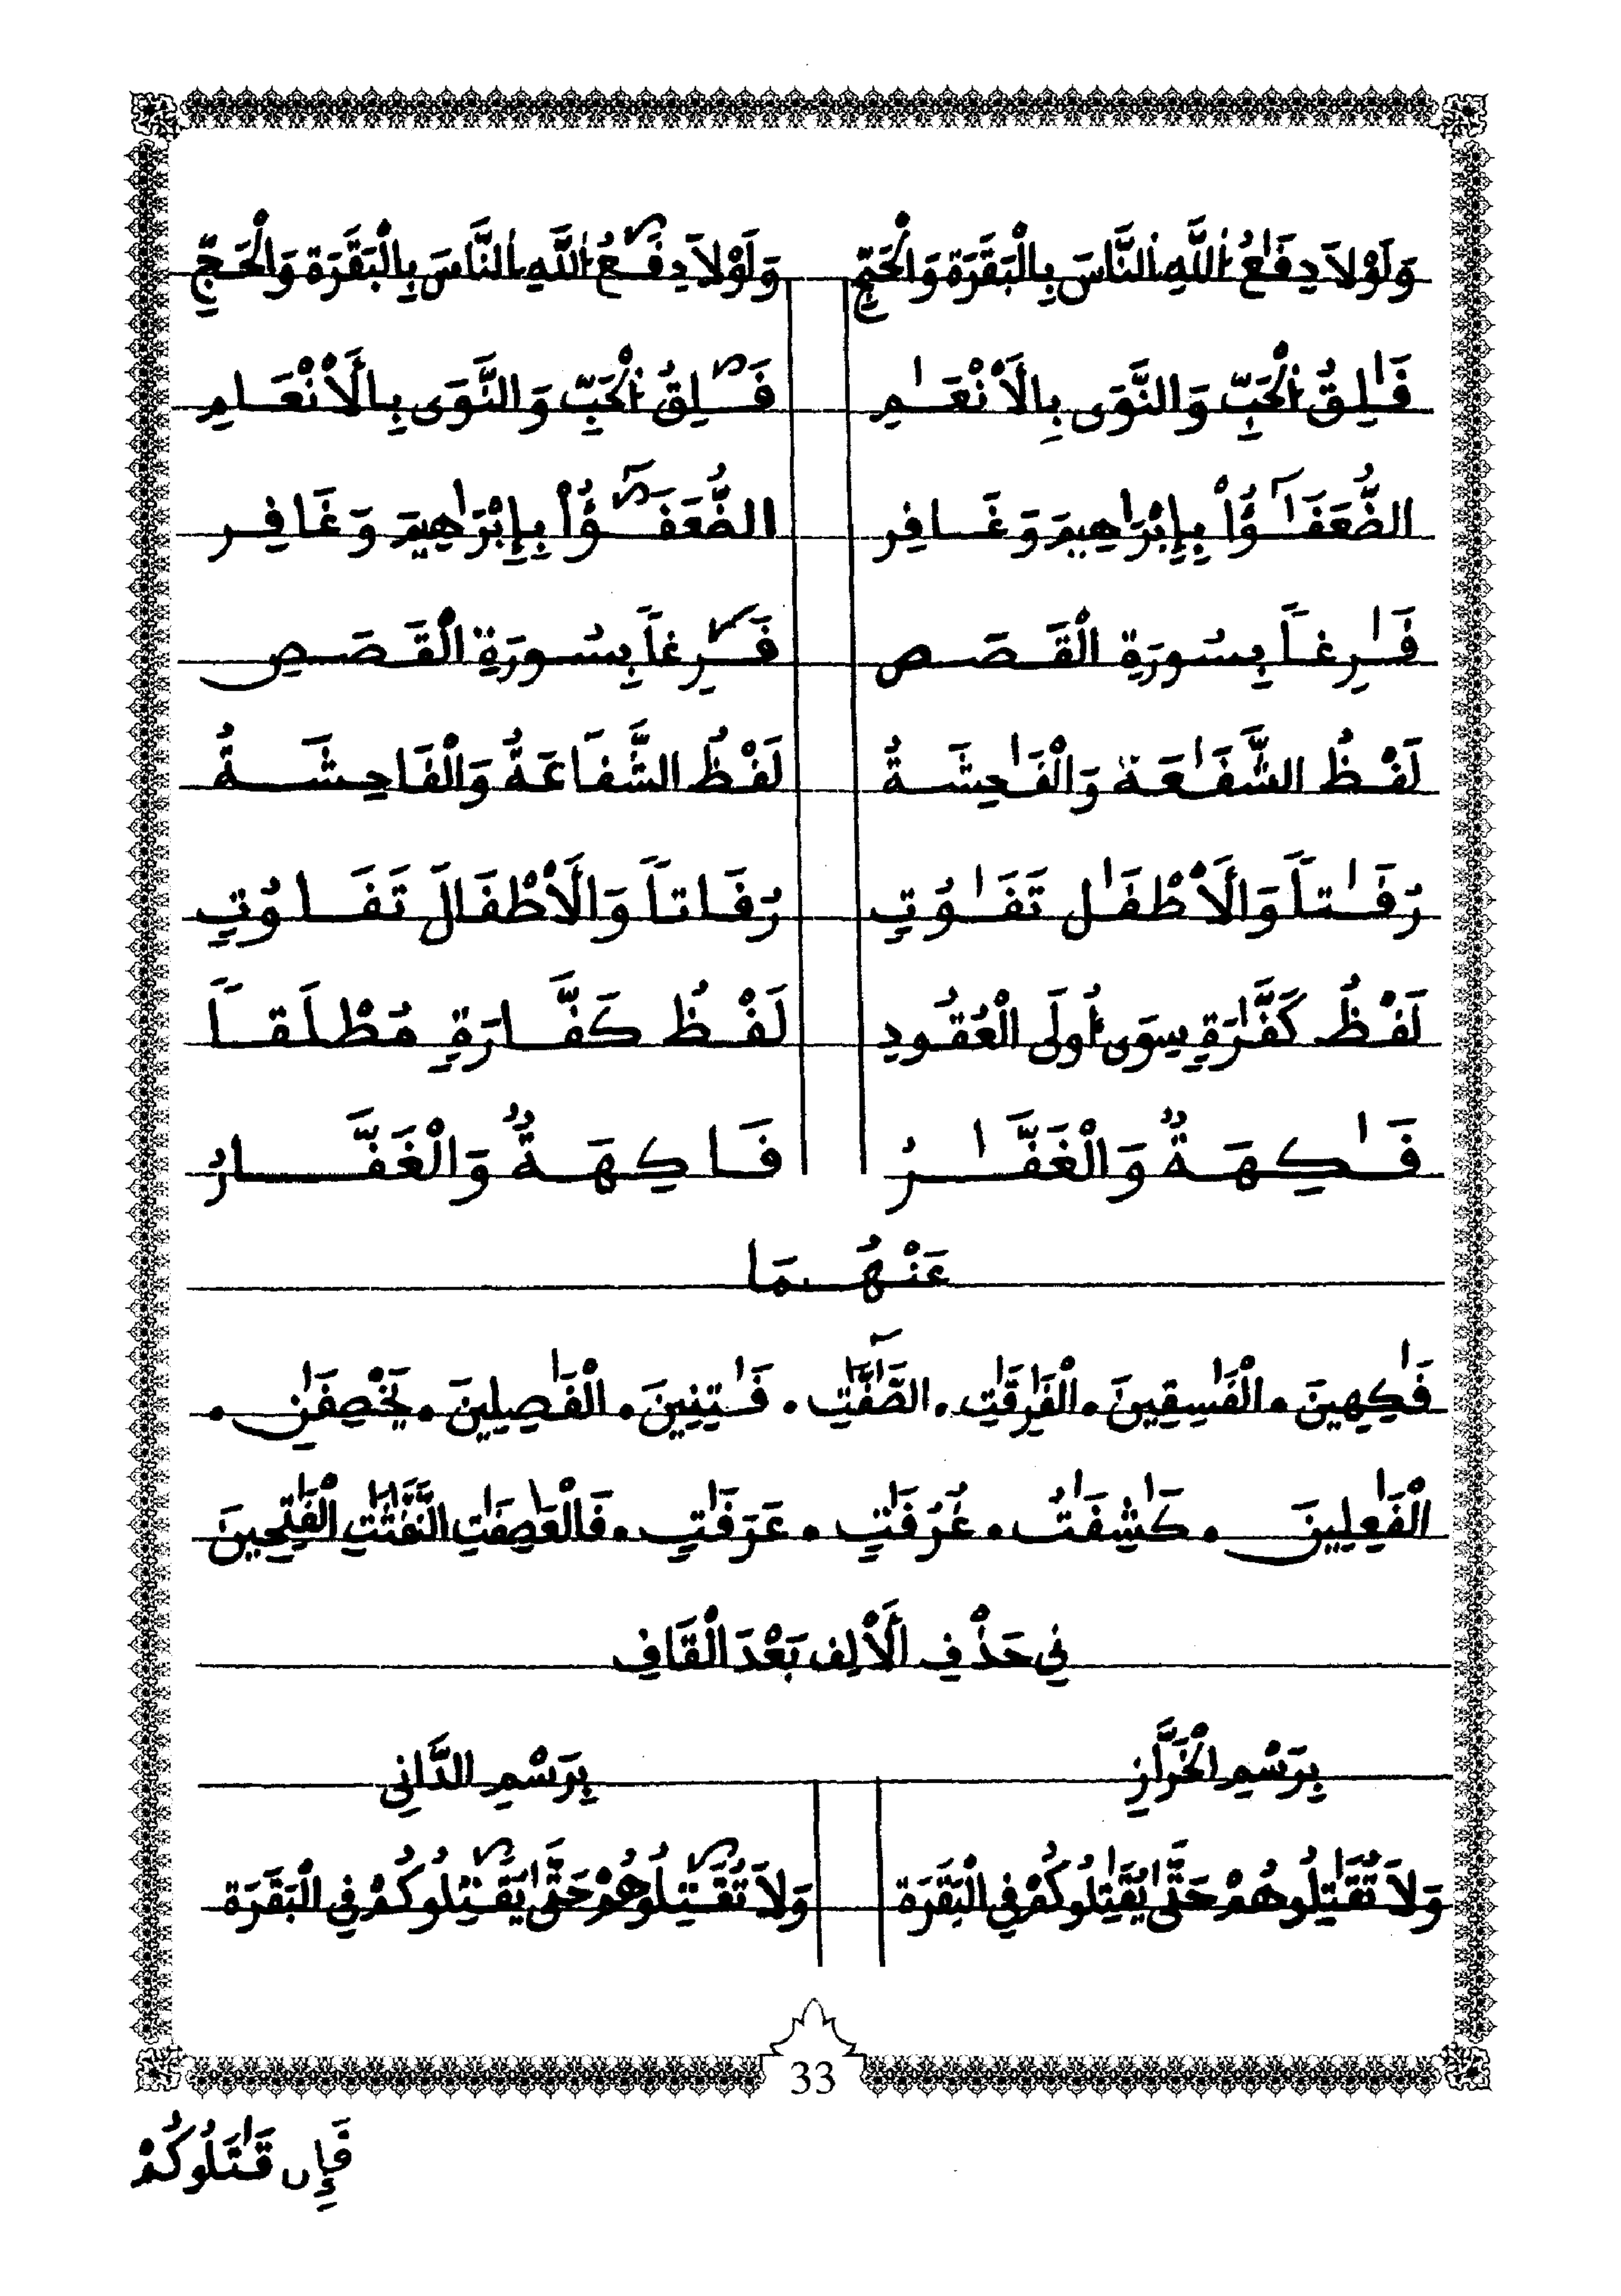 وَلَوْلاَ دِفَٰعُ اُللَّهِ اِلنَّاسَ بِالْبَقَرَة وَالْحَجِّ وَلَوْلاَ دِفَٰعُ اُللَّهِ اِلنَّاسَ بِالْبَقَرَة وَالْحَجِّ
فَٰلِقُ اُلْحَبِّ وَالنَّوَى بِالَأنْعَٰمِ فَٰلِقُ اُلْحَبِّ وَالنَّوَى بِالَأنْعَامِ
الضُّعَفَٰٓؤُاْ بِإِبْرَٰهِيمَ وَغَافِر الضُّعَفَٰٓؤُاْ بِإِبْرَٰهِيمَ وَغَافِر
فَٰرِغاً بِسُورَةِ الْقَصَص فَٰرِغاً بِسُورَةِ الْقَصَصِ
لَفْظُ الشَّفَٰعَة وَالْفَٰحِشَةُ لَفْظُ الشَّفَاعَةُ وَالْفَاحِشَةُ
رُفَٰتاً وَالَأطْفَٰل تَفَٰوُتٍ رُفَاتاً وَالَأطْفَالَ تَفَاوُتٍ
لَفْظُ كَفَّٰرَةٍ سِوَى أُولَى الْعُقُودِ لَفْظُ كَفَّارَةٍ مُطْلَقاً
فَٰكِهَةٌ وَالْغَفَّٰرُ فَاكِهَةٌ وَالْغَفَّارُ
عَنْهُمَا
فَٰكِهِينَ • الْفَٰسِقِينَ • الْفَٰرِقَٰتِ • الصَّٰٓفَّٰتِ • فَٰتِنِينَ • الْفَٰصِلِينَ • يَخْصِفَٰنِ •
الْفَٰعِلِينَ • كَٰشِفَٰتُ • غُرُفَٰتٍ • عَرَفَٰتٍ • فَالْعَٰصِفَٰتِ النَّفَّٰثَٰتِ الْفَٰتِحِينَ
فِي حَذْفِ الَألِف بَعْدَ الْقَافِ
بِرَسْمِ الْخَرَّازِ بِرَسْمِ الدَّانِي
وَلاَ تُقَٰتِلُوهُمْ حَتَّىٰ يُقَٰتِلُوكُمْ فِي الْبَقَرَة وَلاَ تُقَٰتِلُوهُمْ حَتَّىٰ يُقَٰتِلُوكُمْ فِي الْبَقَرَة
33
فَإِن قَٰتَلُوكُمْ